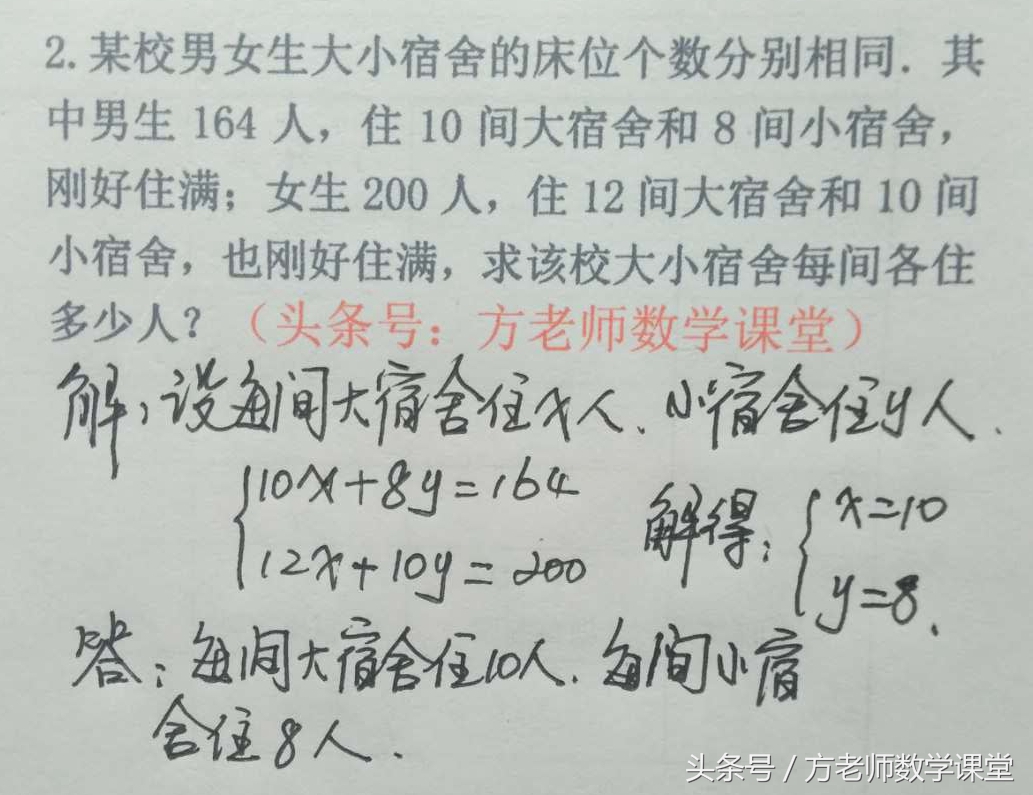 2.某校男女生大小宿舍的床位个数分别相同.其
中男生 164 人，住 10 间大宿舍和 8 间小宿舍，
刚好住满；女生 200 人，住 12 间大宿舍和 10 间
小宿舍，也刚好住满，求该校大小宿舍每间各住
多少人？（头条号：方老师数学课堂）
解：设每间大宿舍住x人.小宿舍住y人.
10x+8y=164
12x+10y=200
解得：
x=10
y=8.
答：每间大宿舍住10人.每间小宿
舍住8人.
头条号 / 方老师数学课堂